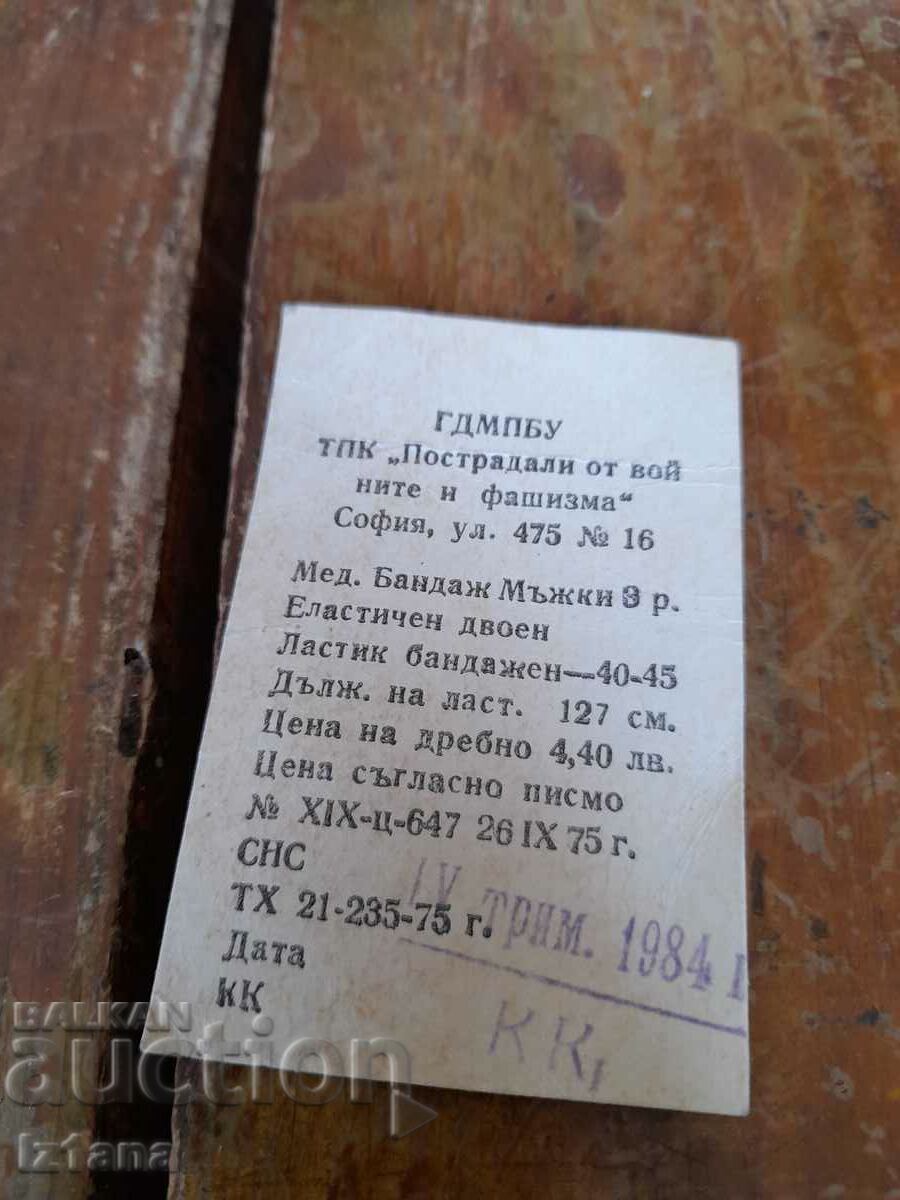 ГДМПБУ
ТПК „Пострадали от вой
ните и фашизма“
София, ул. 475 № 16
Мед. Бандаж Мъжки 3 р.
Еластичен двоен
Ластик бандажен—40-45
Дълж. на ласт. 127 см.
Цена на дребно 4,40 лв.
Цена съгласно писмо
№ XIX-ц-647 26 IX 75 г.
СНС
ТХ 21-235-75 г.
IV трим. 1984 г
Дата
КК
КК,
BALKAN
auction
Iztana